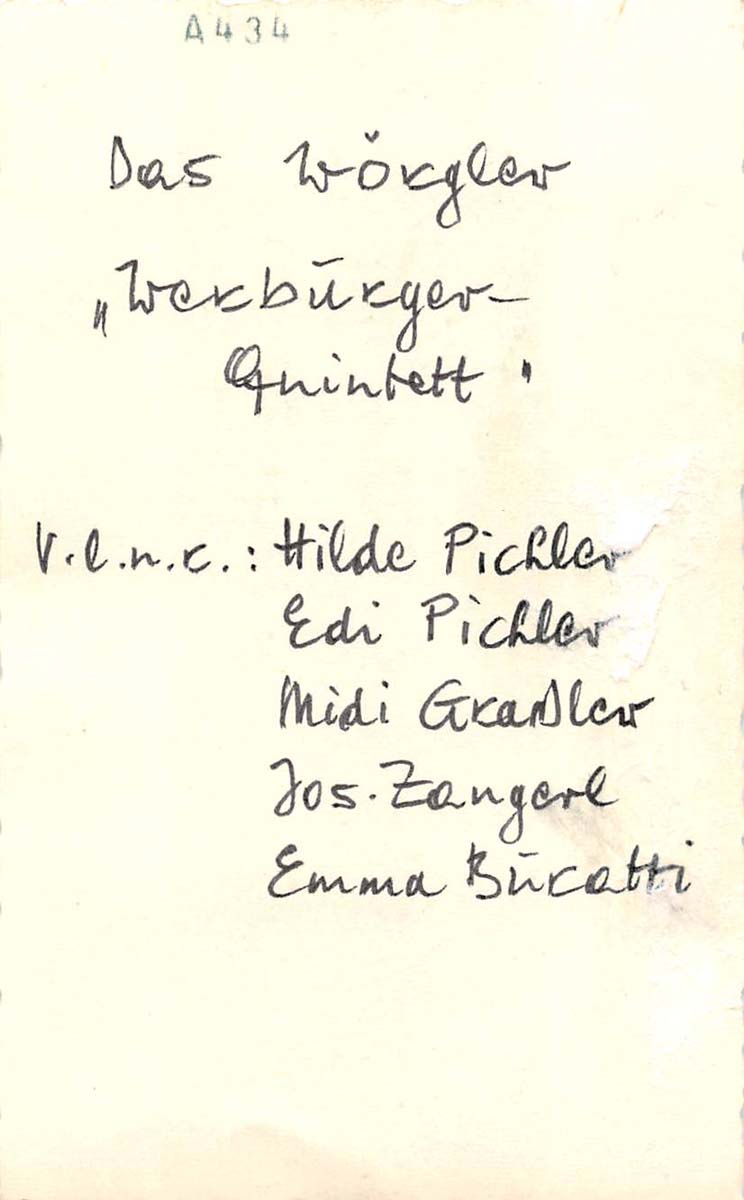 A434
Das Wörgler
„Werburger-
Quintett"
V.l.n.r.: Hilde Pichler
Edi Pichler
Midi Graßler
Jos. Zangerl
Emma Buratti